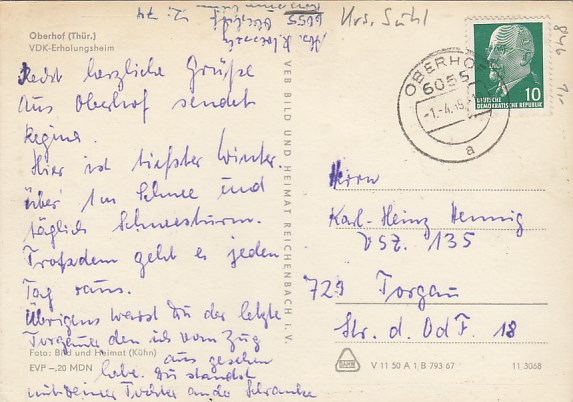 Oberhof (Thür.)
VDK-Erholungsheim
6055
Krs. Suhl
Recht herzliche Grüße
aus Oberhof sendet
Regina.
Hier ist tiefster Winter.
Über 1m Schnee und
täglich Schneesturm.
Trotzdem geht es jeden
Tag raus.
Übrigens warst Du der letzte
Torgauer den ich vom Zug
aus gesehen
habe. Du standst
mit Deiner Tochter an der Schranke
Foto: Bild und Heimat (Kühn)
EVP -,20 MDN
VEB BILD UND HEIMAT REICHENBACH i. V.
OBERHOF
6055
a
DEUTSCHE
DEMOKRATISCHE REPUBLIK
10
846
Herrn
Karl-Heinz Hennig
VSZ. 135
729 Torgau
Str. d. OdF. 18
V 11 50 A 1 B 793 67
11 3068